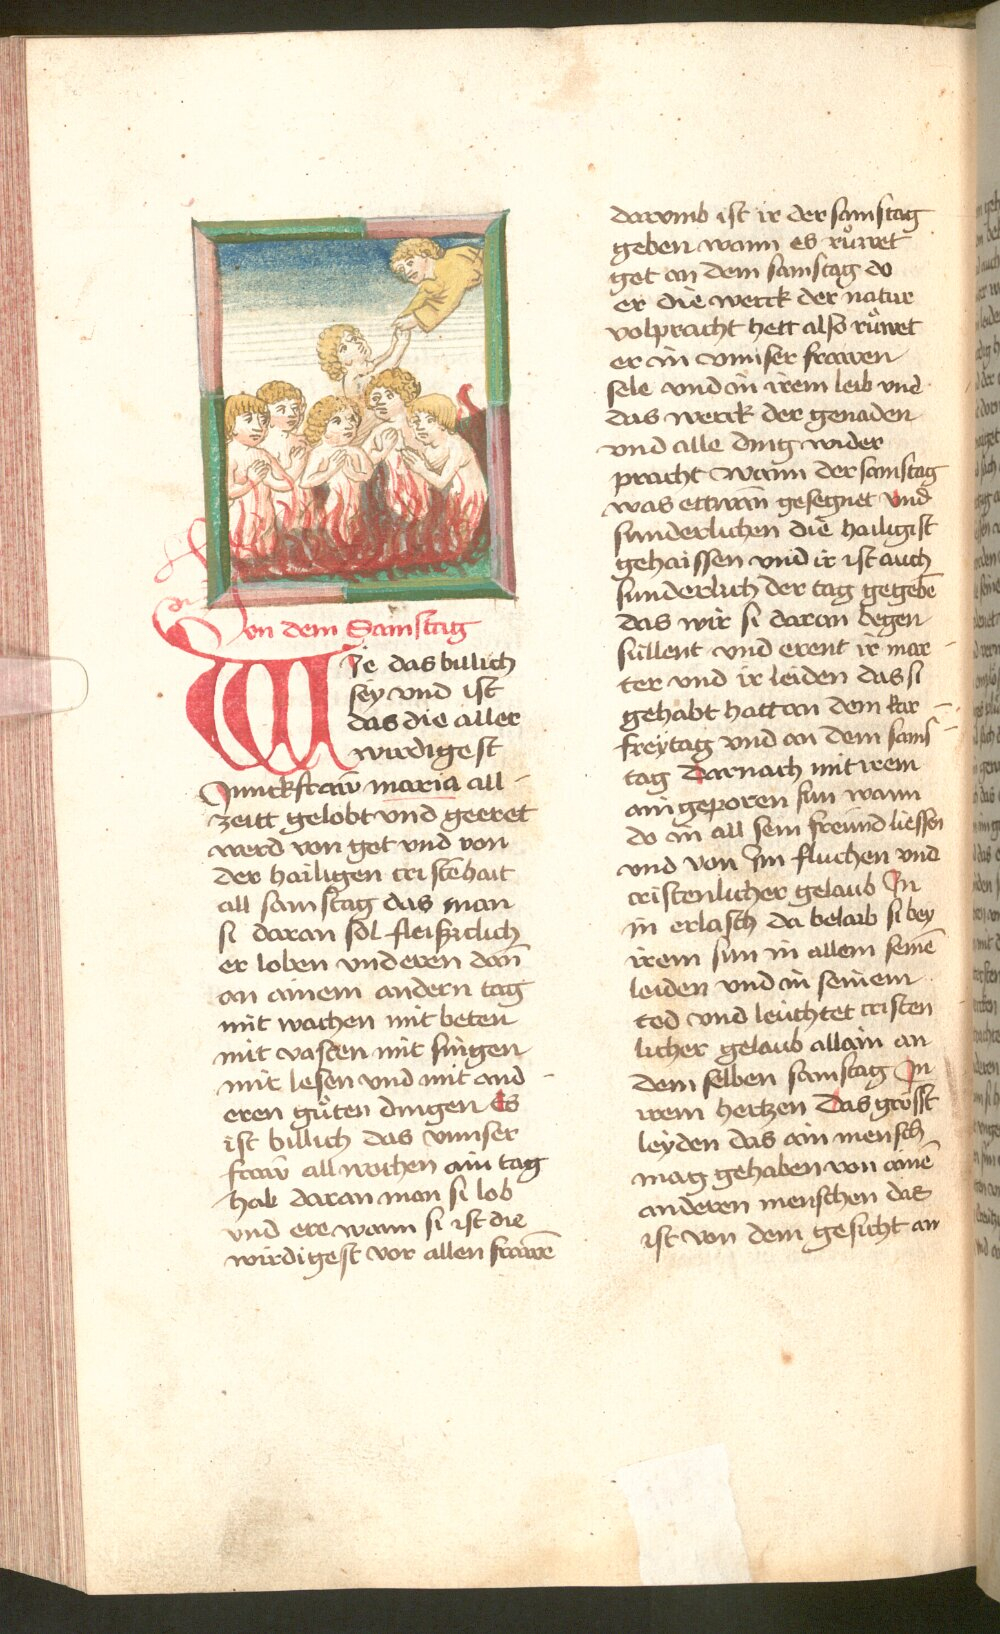 Von dem Samstag
Wie das billich
sey vnd ist
das die aller
wirdigest
Junckfraw maria all
zeitt gelobt vnd geeret
werd von got vnd von
der hailigen cristēhait
all samstag das man
si daran sol fleissiclich
er loben vnd eren dañ
an ainem andern tag
mit wachen mit beten
mit vasten mit singen
mit lesen vnd mit and
eren gůten dingen Es
ist billich das vnnser
fraw all wochen ain tag
hab daran man si lob
vnd ere wann si ist die
wirdigest vor allen frawē
darvmb ist ir der samstag
geben wann es růwet
got an dem samstag do
er die werck der natur
volpracht hett also růwet
er in vnnser frawen
sele vnd in irem leib vnd
das werck der genaden
vnd alle ding wider
pracht wann der samstag
was ettwan gesegnet vnd
sunderlichen die hailigist
gehaissen vnd ir ist auch
sunderlich der tag gegebē
das wir si daran begen
süllent vnd erent ir mar
ter vnd ir leiden das si
gehabt hatt an dem kar
freytag vnd an dem sams
tag darnach mit irem
ain geporen sun wann
do in all sein freund liessen
vnd von Im fluchen vnd
cristenlicher gelaub In
in erlasch da belaib si bey
irem sun in allem seinē
leiden vnd in seinem
tod vnd leuchtet cristen
licher gelaub allain an
dem selben samstag In
irem hertzen Das gröst
leyden das ain mensch
mag gehaben von ainē
anderen menschen das
ist von dem gesicht an